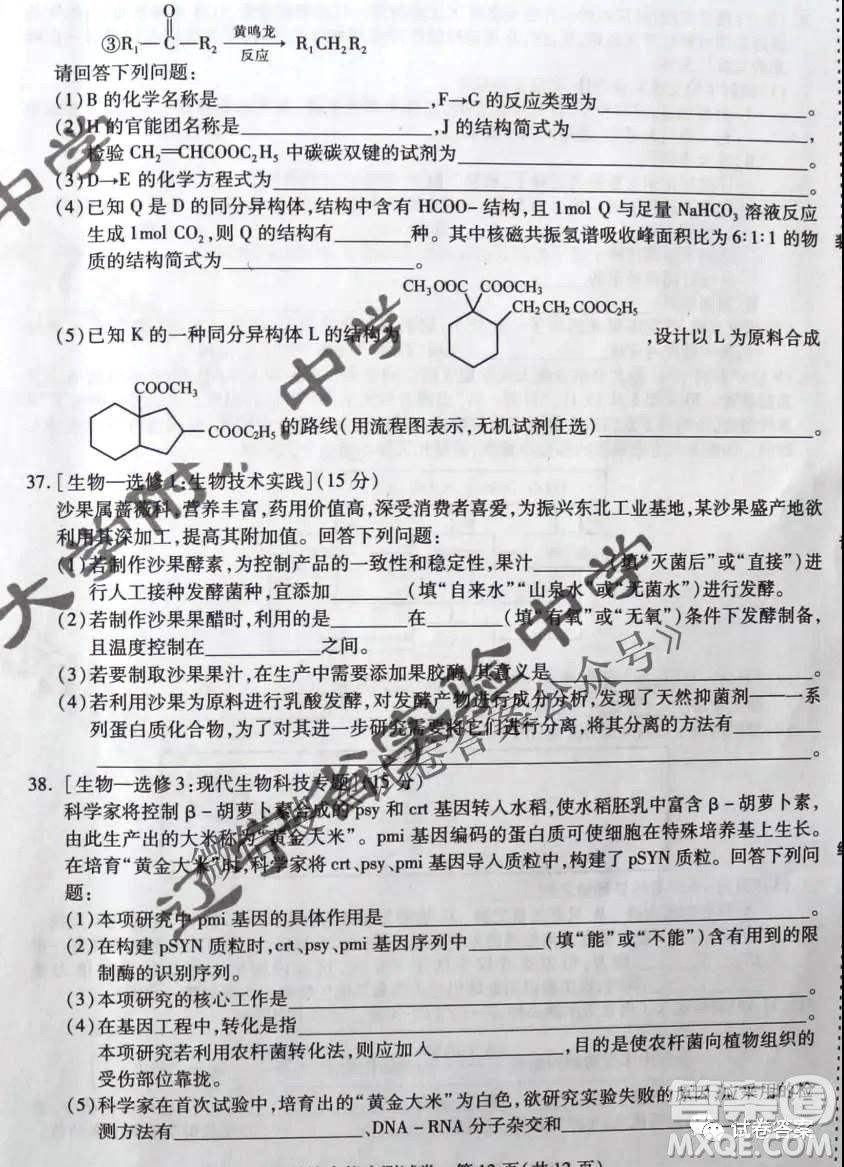 ③R₁—C(=O)—R₂ —黄鸣龙/反应→ R₁CH₂R₂
请回答下列问题:
(1)B 的化学名称是____________,F→G 的反应类型为____________。
(2)H 的官能团名称是____________,J 的结构简式为____________,
检验 CH₂═CHCOOC₂H₅ 中碳碳双键的试剂为____________。
(3)D→E 的化学方程式为____________。
(4)已知 Q 是 D 的同分异构体,结构中含有 HCOO-结构,且 1mol Q 与足量 NaHCO₃ 溶液反应
生成 1mol CO₂,则 Q 的结构有______种。其中核磁共振氢谱吸收峰面积比为 6∶1∶1 的物
质的结构简式为____________。
CH₃OOC COOCH₃
CH₂CH₂COOC₂H₅
(5)已知 K 的一种同分异构体 L 的结构为 ,设计以 L 为原料合成
COOCH₃
COOC₂H₅ 的路线(用流程图表示,无机试剂任选)____________。
37. [生物—选修 1:生物技术实践](15 分)
沙果属蔷薇科,营养丰富,药用价值高,深受消费者喜爱,为振兴东北工业基地,某沙果盛产地欲
利用其深加工,提高其附加值。回答下列问题:
(1)若制作沙果酵素,为控制产品的一致性和稳定性,果汁______(填“灭菌后”或“直接”)进
行人工接种发酵菌种,宜添加______(填“自来水”“山泉水”或“无菌水”)进行发酵。
(2)若制作沙果果醋时,利用的是______在______(填“有氧”或“无氧”)条件下发酵制备,
且温度控制在________之间。
(3)若要制取沙果果汁,在生产中需要添加果胶酶,其意义是____________。
(4)若利用沙果为原料进行乳酸发酵,对发酵产物进行成分分析,发现了天然抑菌剂——一系
列蛋白质化合物,为了对其进一步研究需要将它们进行分离,将其分离的方法有______
____________。
38. [生物—选修 3:现代生物科技专题](15 分)
科学家将控制 β-胡萝卜素合成的 psy 和 crt 基因转入水稻,使水稻胚乳中富含 β-胡萝卜素,
由此生产出的大米称为“黄金大米”。pmi 基因编码的蛋白质可使细胞在特殊培养基上生长。
在培育“黄金大米”时,科学家将 crt、psy、pmi 基因导入质粒中,构建了 pSYN 质粒。回答下列问
题:
(1)本项研究中 pmi 基因的具体作用是____________。
(2)在构建 pSYN 质粒时,crt、psy、pmi 基因序列中______(填“能”或“不能”)含有用到的限
制酶的识别序列。
(3)本项研究的核心工作是____________。
(4)在基因工程中,转化是指____________。
本项研究若利用农杆菌转化法,则应加入__________,目的是使农杆菌向植物组织的
受伤部位靠拢。
(5)科学家在首次试验中,培育出的“黄金大米”为白色,欲研究实验失败的原因,应采用的检
测方法有____________、DNA-RNA 分子杂交和____________。
大学附
中学
中学
辽宁省实验中学
试卷答案公众号》
答案圈
试卷答案
MXQE.COM
第 12 页(共 12 页)